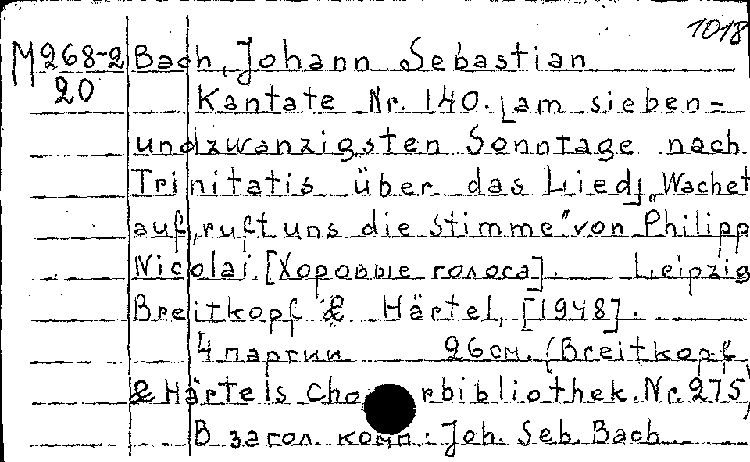 1018
M268-2 Bach, Johann Sebastian
20
Kantate Nr. 140. [am sieben-
undzwanzigsten Sonntage nach
Trinitatis über das Lied] „Wachet
auf, ruft uns die Stimme" von Philipp
Nicolai. [Хоровые голоса]. Leipzig
Breitkopf & Härtel, [1948].
4 партии 26 см. (Breitkopf
& Härtels Cho rbibliothek. Nr. 275)
В загол. комп.: Joh. Seb. Bach